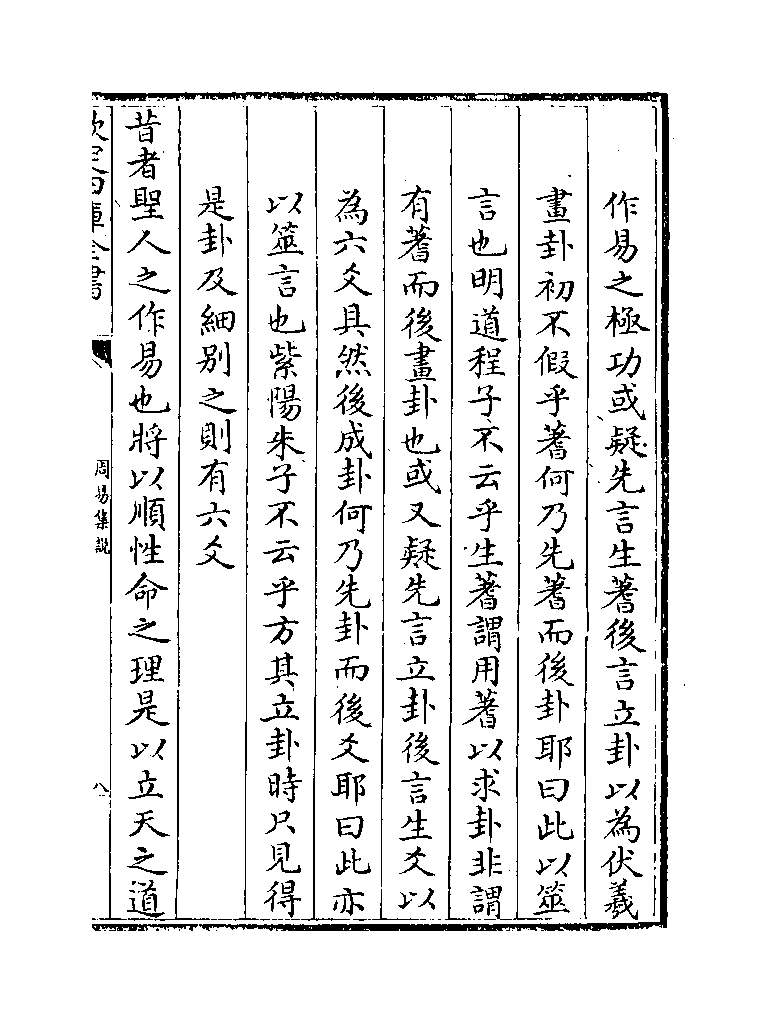 作易之極功或疑先言生蓍後言立卦以為伏羲
畫卦初不假乎蓍何乃先蓍而後卦耶曰此以筮
言也明道程子不云乎生蓍謂用蓍以求卦非謂
有蓍而後畫卦也或又疑先言立卦後言生爻以
為六爻具然後成卦何乃先卦而後爻耶曰此亦
以筮言也紫陽朱子不云乎方其立卦時只見得
是卦及細别之則有六爻
昔者聖人之作易也將以順性命之理是以立天之道
欽定四庫全書
周易集説
八